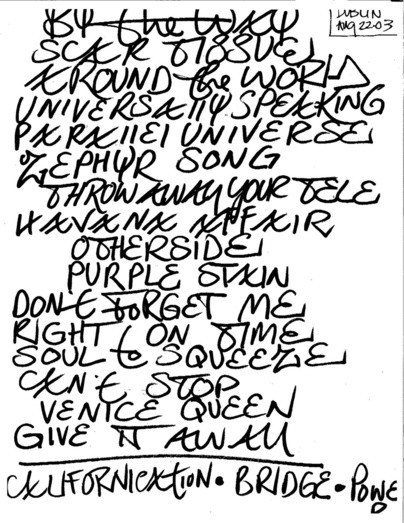 DUBLIN
AUG 22 03
BY the WAY
SCAR TISSUE
AROUND the WORLD
UNIVERSALLY SPEAKING
PARALLEL UNIVERSE
ZEPHYR SONG
THROW AWAY YOUR TELE
HAVANA AFFAIR
OTHERSIDE
PURPLE STAIN
DON't FORGET ME
RIGHT ON TIME
SOUL to SQUEEZE
CAN't STOP
VENICE QUEEN
GIVE IT AWAY
CALIFORNICATION • BRIDGE • POWE